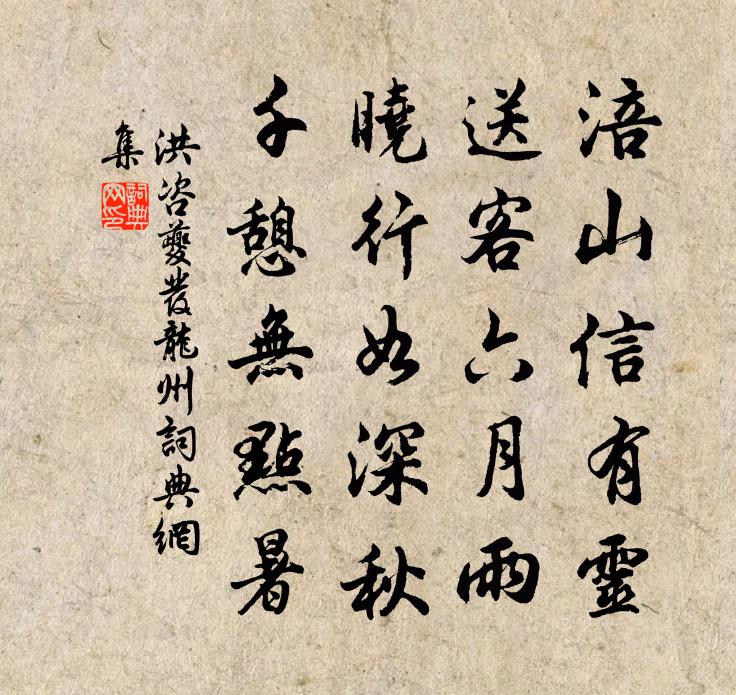 涪山信有靈
送客六月雨
曉行如深秋
千憩無點暑
洪咨夔發龍州詞典網
集
詞典網印